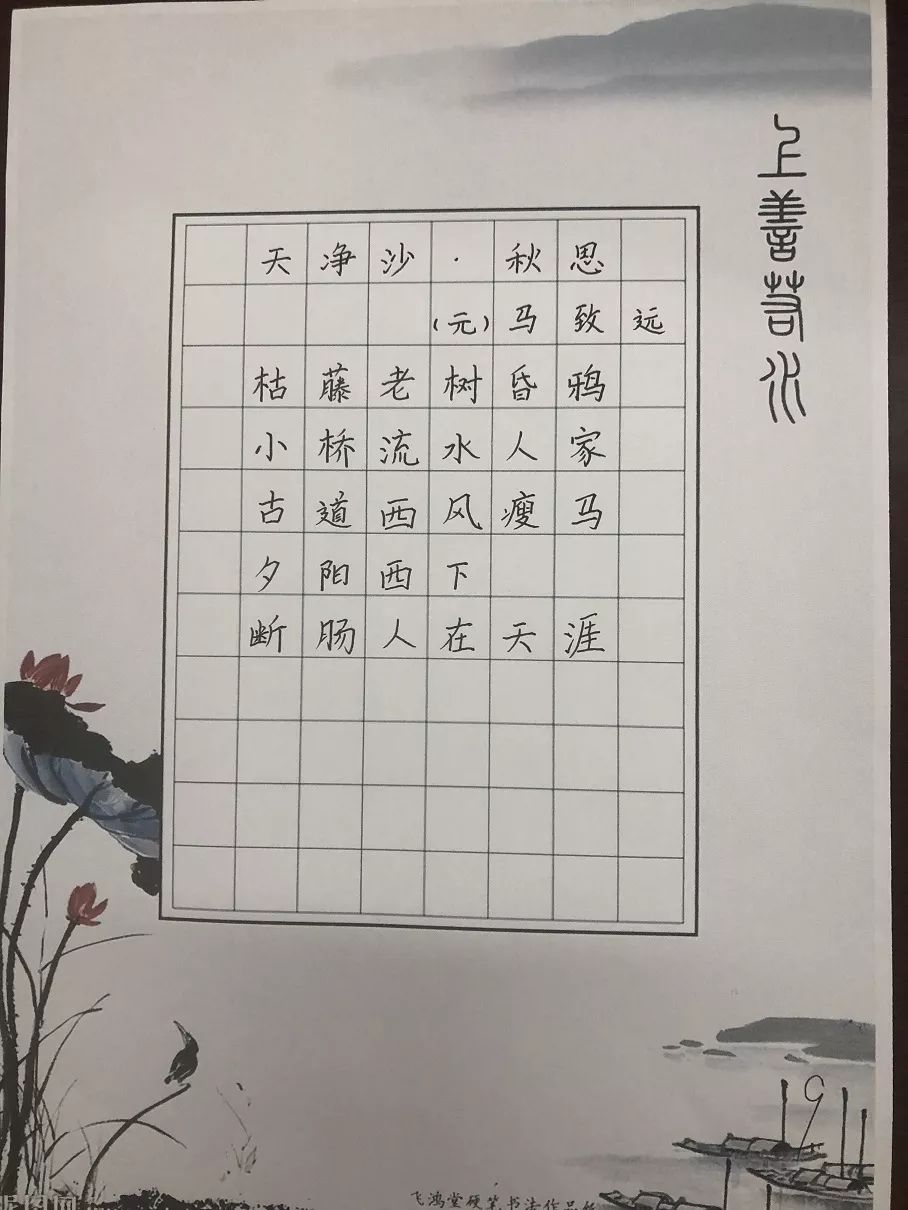 上善若水
天净沙·秋思
(元)马致远
枯藤老树昏鸦
小桥流水人家
古道西风瘦马
夕阳西下
断肠人在天涯
9
飞鸿堂硬笔书法作品纸
昵图网